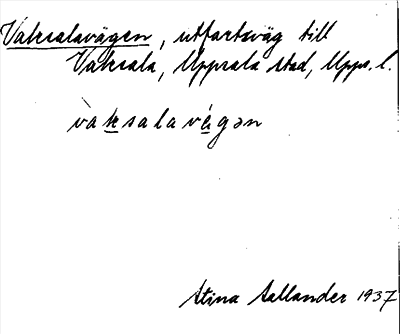 Vaksalavägen, utfartsväg till
Vaksala, Uppsala stad, Upps. l.
vàksalavägən
Stina Sallander 1937